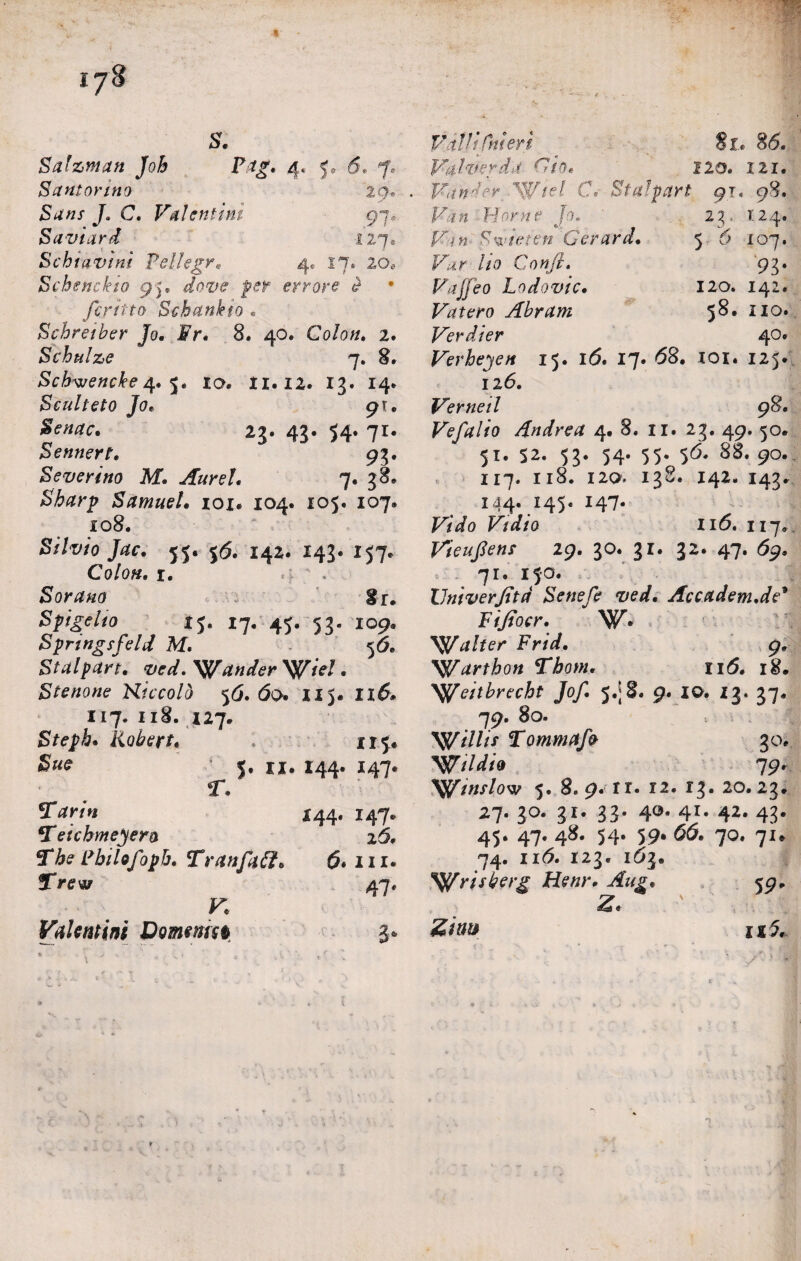 178
S.
Salzman Joh Pag. 4. 5. 6. 7.
Santorino 29.
Sans J. C. Valentini 97.
Saviard 127.
Schiavini Pellegr. 4. 17. 20.
Schenckio 95. dove per errore è
scritto Schankio.
Schreiber Jo. Fr. 8. 40. Colon. 2.
Schulze 7. 8.
Schwencke 4. 5. 10. 11. 12. 13. 14.
Sculteto Jo. 91.
Senac. 23. 43. 54. 71.
Sennert. 93.
Severino M. Aurel. 7. 38.
Sharp Samuel. 101. 104. 105. 107.
108.
Silvio Jac. 55. 56. 142. 143. 157.
Colon. 1.
Sorano 81.
Spigelio 15. 17. 45. 53. 109.
Springsfeld M. 56.
Stalpart. ved. Wander Wiel.
Stenone Niccolò 56. 60. 115. 116.
117. 118. 127.
Steph. Robert. 115.
Sue 5. 11. 144. 147.
T.
Tarin 144. 147.
Teichmeyero 26.
The Philosoph. Transact. 6. 111.
Trew 47.
V.
Valentini Domenico 3.
Vallisnieri 81. 86.
Valverda Gio. 120. 121.
Vander Wiel C. Stalpart 91. 98.
Van Horne Jo. 23. 124.
Van Swieten Gerard. 5 6 107.
Var lio Const. 93.
Vasseo Lodovic. 120. 142.
Vatero Abram 58. 110.
Verdier 40.
Verheyen 15. 16. 17. 68. 101. 125.
126.
Verneil 98.
Vesalio Andrea 4. 8. 11. 23. 49. 50.
51. 52. 53. 54. 55. 56. 88. 90.
117. 118. 120. 138. 142. 143.
144. 145. 147.
Vido Vidio 116. 117.
Vieussens 29. 30. 31. 32. 47. 69.
71. 150.
Università Senese ved. Accadem.de'
Fisiocr. W.
Walter Frid. 9.
Warthon Thom. 116. 18.
Weitbrecht Jos. 5. 8. 9. 10. 13. 37.
79. 80.
Willis Tommaso 30.
Wildio 79.
Winslow 5. 8. 9. 11. 12. 13. 20. 23.
27. 30. 31. 33. 40. 41. 42. 43.
45. 47. 48. 54. 59. 66. 70. 71.
74. 116. 123. 163.
Wrisberg Henr. Aug. 59.
Z.
Zinn 115.